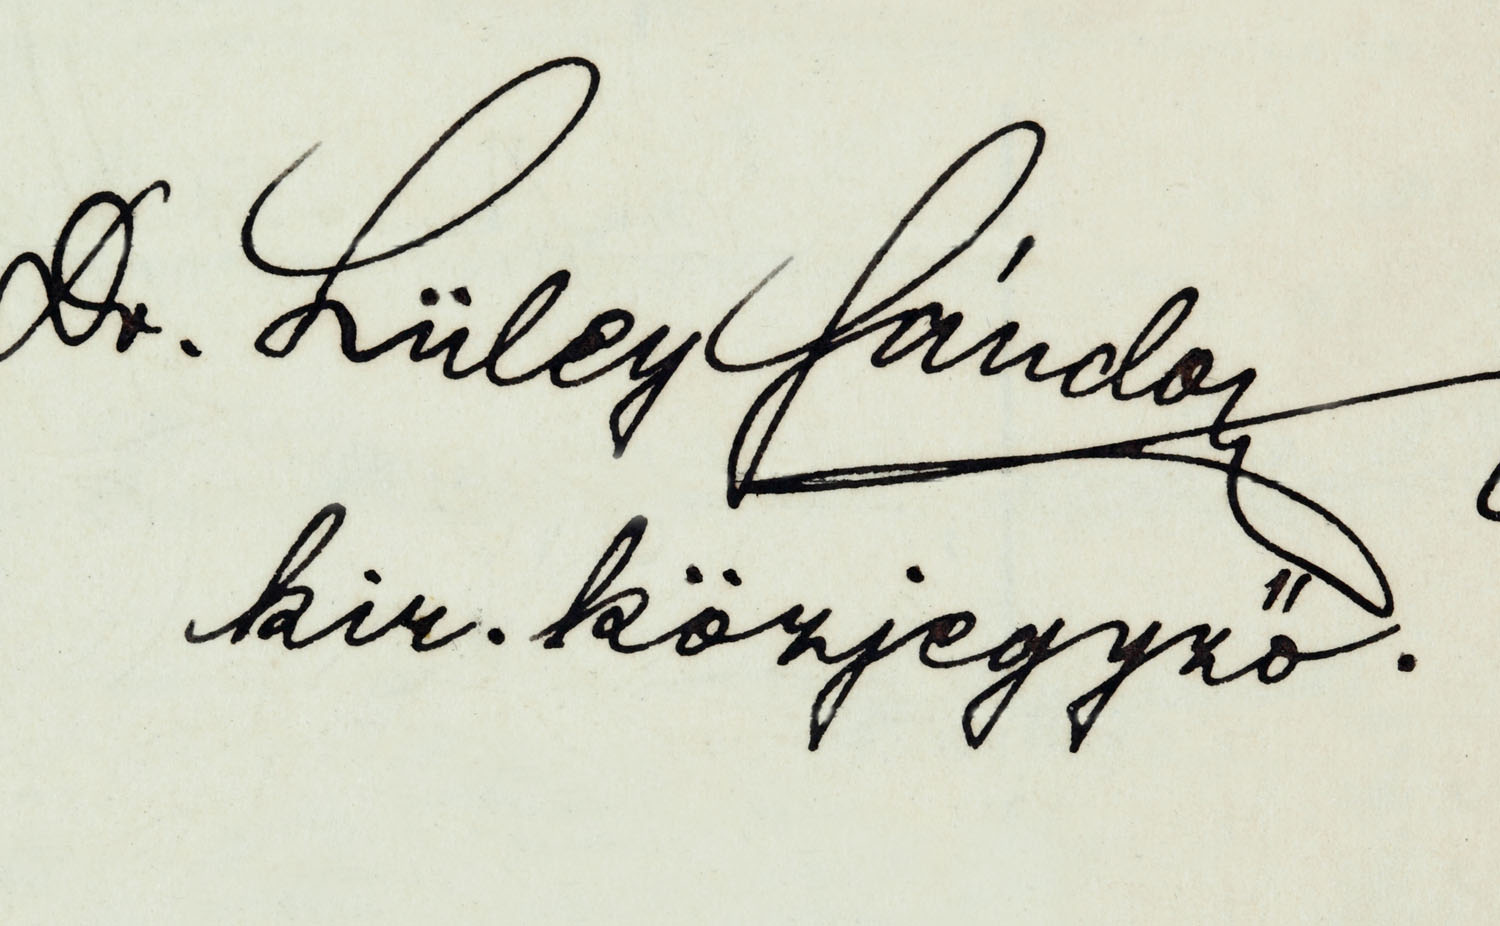 Dr. Lüley Sándor
kir. közjegyző.